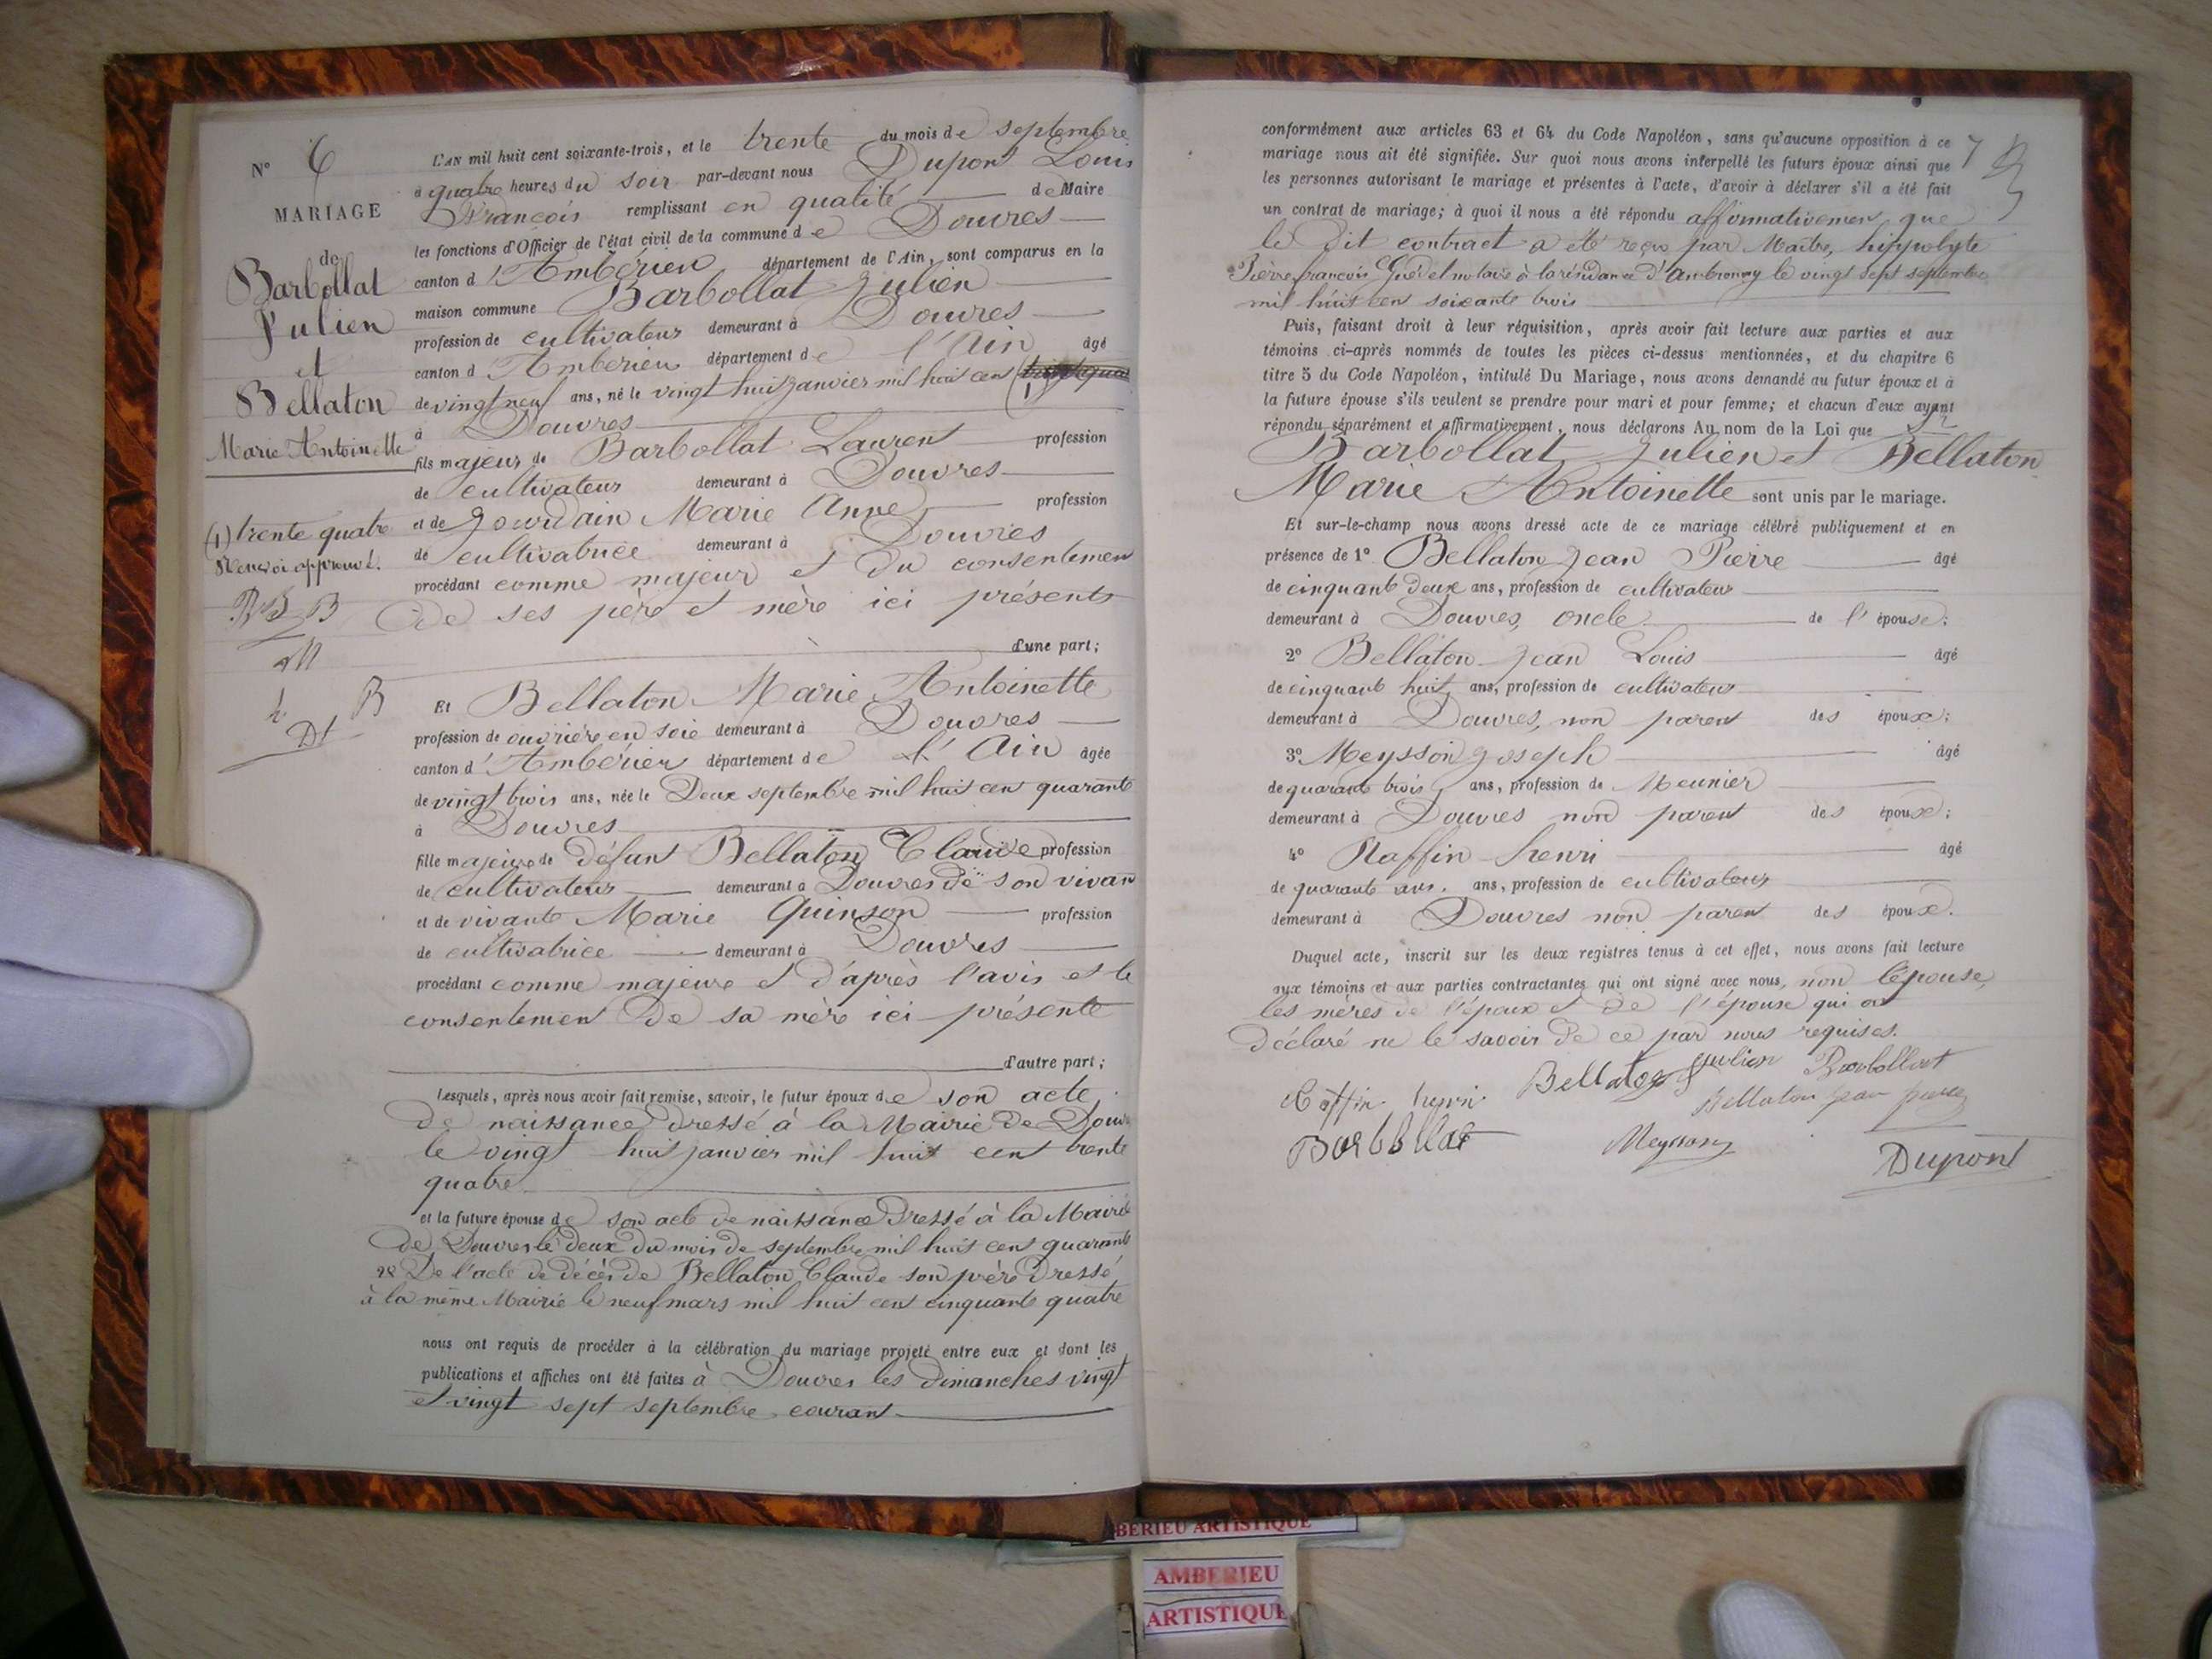 N° 6
MARIAGE
de
Barbollat
Julien
et
Bellaton
Marie Antoinette
(1) trente quatre
Renvoi approuvé.
L'AN mil huit cent soixante-trois, et le trente du mois de septembre
à quatre heures du soir par-devant nous Dupont Louis
François remplissant en qualité de Maire
les fonctions d'Officier de l'état civil de la commune de Douvres
canton d'Ambérieu département de l'Ain, sont comparus en la
maison commune Barbollat Julien
profession de cultivateur demeurant à Douvres
canton d'Ambérieu département de l'Ain âgé
de vingt neuf ans, né le vingt huit janvier mil huit cent (1)
à Douvres
fils majeur de Barbollat Laurent profession
de cultivateur demeurant à Douvres
et de Jourdain Marie Anne profession
de cultivatrice demeurant à Douvres
procédant comme majeur et du consentement
de ses père et mère ici présents
d'une part;
Et Bellaton Marie Antoinette
profession de ouvrière en soie demeurant à Douvres
canton d'Ambérieu département de l'Ain âgée
de vingt trois ans, née le Deux septembre mil huit cent quarante
à Douvres
fille majeure de défunt Bellaton Claude profession
de cultivateur demeurant à Douvres de son vivant
et de vivante Marie Quinson profession
de cultivatrice demeurant à Douvres
procédant comme majeure et d'après l'avis et le
consentement de sa mère ici présente
d'autre part;
Lesquels, après nous avoir fait remise, savoir, le futur époux de son acte
de naissance dressé à la Mairie de Douvres
le vingt huit janvier mil huit cent trente
quatre
et la future épouse de son acte de naissance dressé à la Mairie
de Douvres le deux du mois de septembre mil huit cent quarante
2° De l'acte de décès de Bellaton Claude son père dressé
à la même Mairie le neuf mars mil huit cent cinquante quatre
nous ont requis de procéder à la célébration du mariage projeté entre eux et dont les
publications et affiches ont été faites à Douvres les dimanches vingt
et vingt sept septembre courant
conformément aux articles 63 et 64 du Code Napoléon, sans qu'aucune opposition à ce
mariage nous ait été signifiée. Sur quoi nous avons interpellé les futurs époux ainsi que
les personnes autorisant le mariage et présentes à l'acte, d'avoir à déclarer s'il a été fait
un contrat de mariage; à quoi il nous a été répondu affirmativement que
le dit contract a été reçu par Maître, hippolyte
Pierre françois notaire à la résidence d'ambronay le vingt sept septembre
mil huit cent soixante trois
Puis, faisant droit à leur réquisition, après avoir fait lecture aux parties et aux
témoins ci-après nommés de toutes les pièces ci-dessus mentionnées, et du chapitre 6
titre 5 du Code Napoléon, intitulé Du Mariage, nous avons demandé au futur époux et à
la future épouse s'ils veulent se prendre pour mari et pour femme; et chacun d'eux ayant
répondu séparément et affirmativement, nous déclarons Au nom de la Loi que
Barbollat Julien et Bellaton
Marie Antoinette sont unis par le mariage.
Et sur-le-champ nous avons dressé acte de ce mariage célébré publiquement et en
présence de 1° Bellaton Jean Pierre âgé
de cinquante deux ans, profession de cultivateur
demeurant à Douvres, oncle de l'épouse;
2° Bellaton Jean Louis âgé
de cinquante huit ans, profession de cultivateur
demeurant à Douvres, non parent des époux;
3° Meysson Joseph âgé
de quarante trois ans, profession de Meunier
demeurant à Douvres non parent des époux;
4° Raffin henri âgé
de quarante ans. ans, profession de cultivateur
demeurant à Douvres non parent des époux.
Duquel acte, inscrit sur les deux registres tenus à cet effet, nous avons fait lecture
aux témoins et aux parties contractantes qui ont signé avec nous, non l'épouse,
les mères de l'époux et de l'épouse qui ont
déclaré ne le savoir de ce par nous requises.
Raffin henri Bellaton Julien Barbollat
Bellaton jean pierre
Barbollat Meysson Dupont
BERIEU ARTISTIQUE
AMBERIEU
ARTISTIQUE